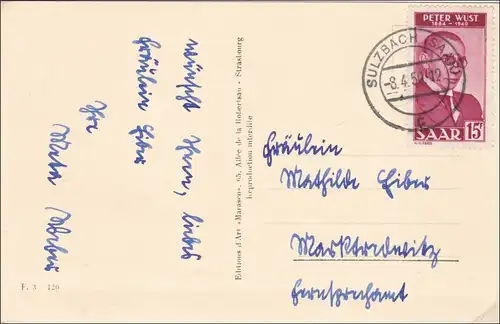 wünscht Ihnen, liebes
Fräulein Eiber
Ihre
Meta Weber
F. 3 120
Editions d'Art «Marasen», 65, Allée de la Robertsau - Strasbourg
Reproduction interdite
PETER WUST
1884 - 1940
SAAR 15F
SULZBACH (SAAR)
-8.4.50-12
c
Fräulein
Mathilde Eiber
Marktredwitz
Fernsprechamt